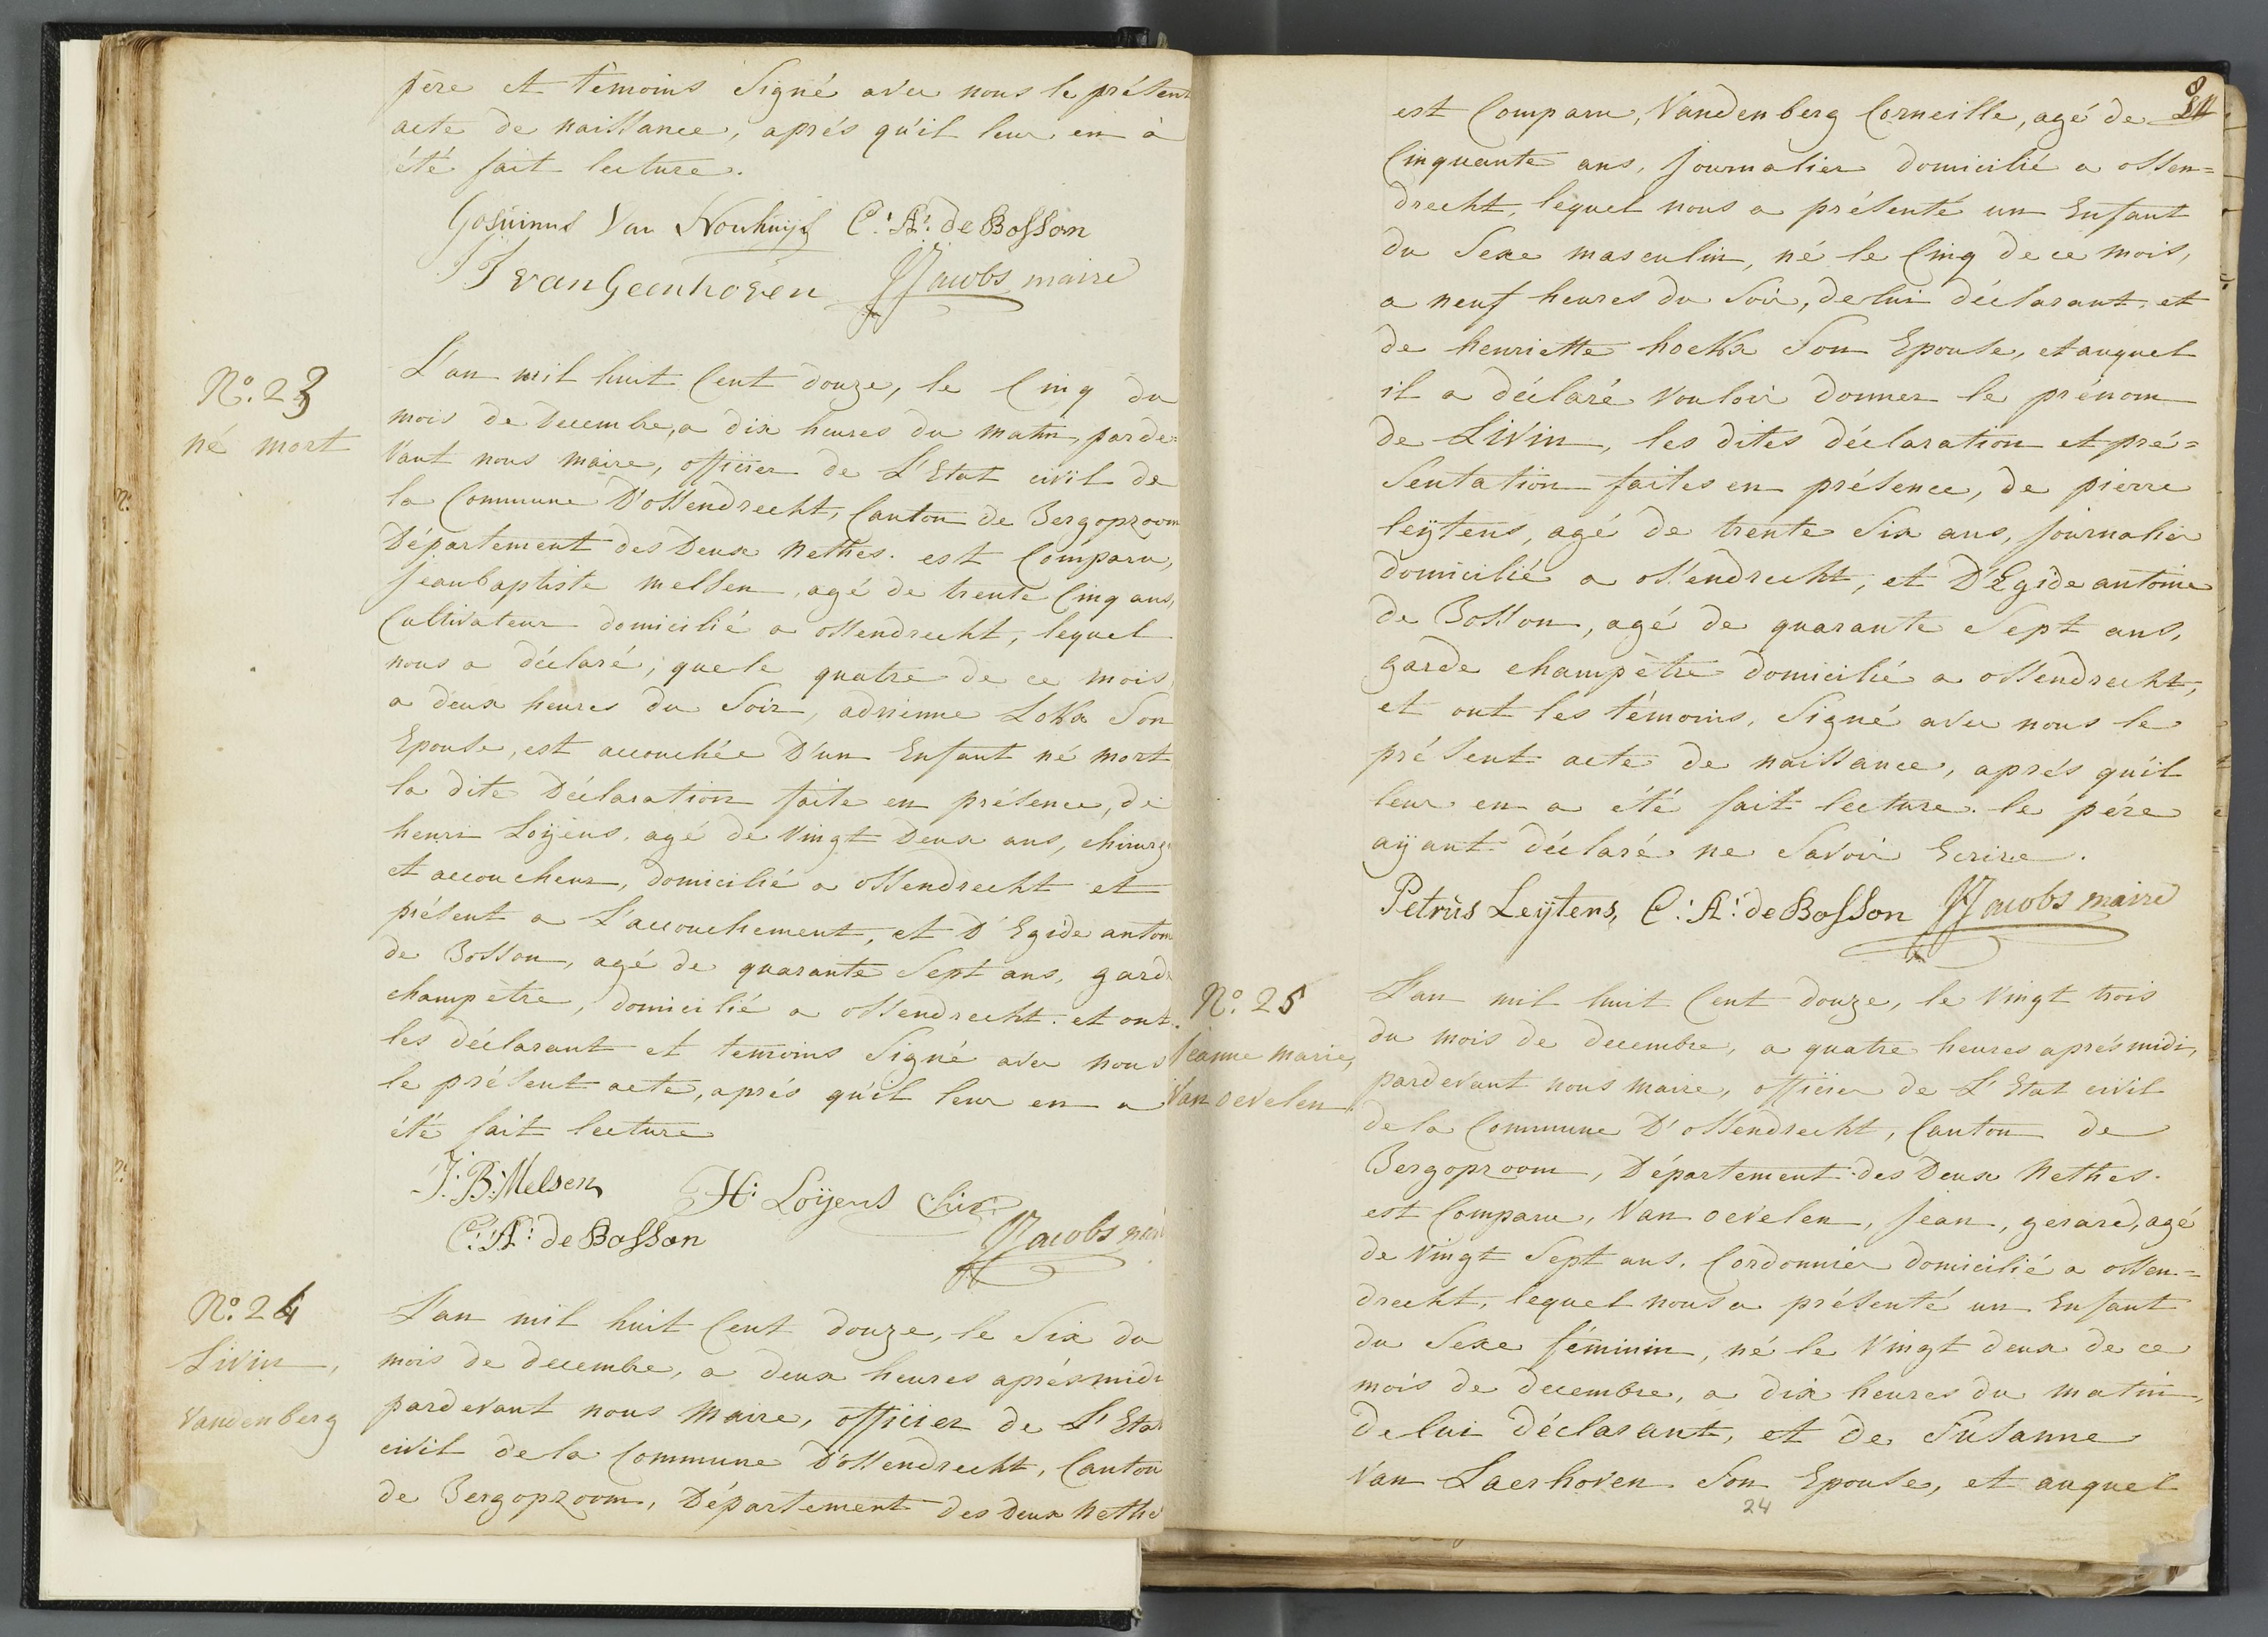 père et témoins Signé avec nous le présent
acte de naissance, aprés qu'il leur en à
été fait lecture.
Gosuinus Van Nouhuijs C: A: de Bosson
J J van Geenhoven JJacobs maire
N.o 23
né mort
L'an mil huit Cent douze, le Cinq du
mois de Decembre, a dix heures du matin, parde=
vant nous maire, officier de L'Etat civil de
la Commune D'ossendrecht, Canton de Bergopzoom
Département des Deux Nethes. est Comparu,
Jeanbaptiste melsen, agé de trente Cinq ans,
Cultivateur domicilié a ossendrecht, lequel
nous a déclaré, que le quatre de ce mois,
a deux heures du Soir, adrienne Lokx Son
Epouse, est accouchée D'un Enfant né mort
la dite Déclaration faite en présence, de
henri Loÿens, agé de vingt Deux ans, chirurg
et accoucheur, domicilié a ossendrecht et
présent a L'accouchement, et D'Egide antoin
de Bosson, agé de quarante Sept ans, garde
champètre, domicilié a ossendrecht. et ont
les déclarant et temoins Signé avec nous
le présent acte, aprés qu'il leur en a
été fait lecture
J: B: Melsen H: Loÿens Chir:
C: A: de Bosson JJacobs mair
N.o 24
Livin,
Vandenberg
L'an mil huit Cent douze, le Six du
mois de decembre, a deux heures aprés midi
pardevant nous Maire, officier de L'Etat
civil de la Commune D'ossendrecht, Canton
de Bergopzoom, Département des Deux Nethe
8
est Comparu, Vandenberg Corneille, agé de
Cinquante ans, Journalier domicilié a ossen=
drecht, lequel nous a présenté un Enfant
du Sexe masculin, né le Cinq de ce mois,
a neuf heures du Soir, de lui déclarant, et
de henriette hoekx Son Epouse, et auquel
il a déclaré vouloir donner le prénom
de Livin, les dites déclaration et pré=
sentation faites en présence, de pierre
leÿtens, agé de trente Six ans, Journalier
domicilié a ossendrecht, et D'Egide antoine
de Bosson, agé de quarante Sept ans,
garde champètre domicilié a ossendrecht,
et ont les témoins, Signé avec nous le
présent acte de naissance, aprés qu'il
leur en a été fait lecture. le pére
aÿant déclaré ne Savoir Ecrire.
Petrus Leÿtens, C: A: de Bosson JJacobs maire
N.o 25
Jeanne marie,
Van oevelen
L'an mil huit Cent douze, le vingt trois
du mois de decembre, a quatre heures aprés midi,
pardevant nous maire, officier de L'Etat civil
de la Commune D'ossendrecht, Canton de
Bergopzoom, Département des Deux Nethes.
est Comparu, Van oevelen, Jean, gerard, agé
de vingt Sept ans, Cordonnier domicilié a ossen=
drecht, lequel nous a présenté un Enfant
du Sexe féminin, né le vingt deux de ce
mois de decembre, a dix heures du matin,
de lui déclarant, et de Susanne
Van Laerhoven Son Epouse, et auquel
24